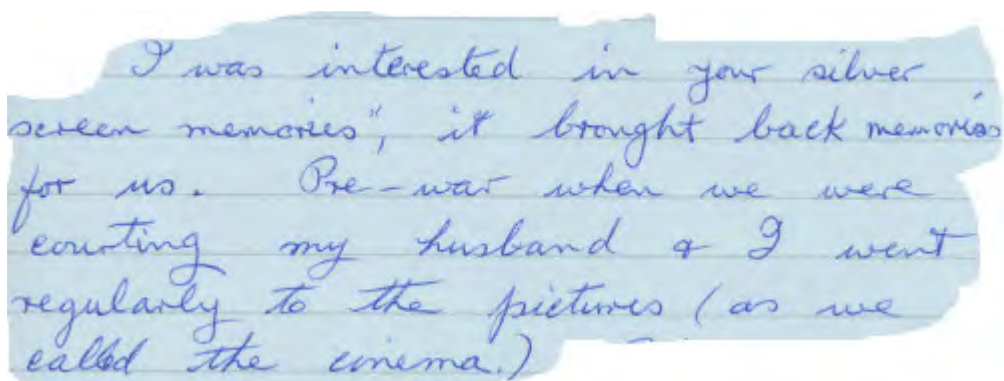 I was interested in your silver
screen memories", it brought back memories
for us. Pre-war when we were
courting my husband & I went
regularly to the pictures (as we
called the cinema.)